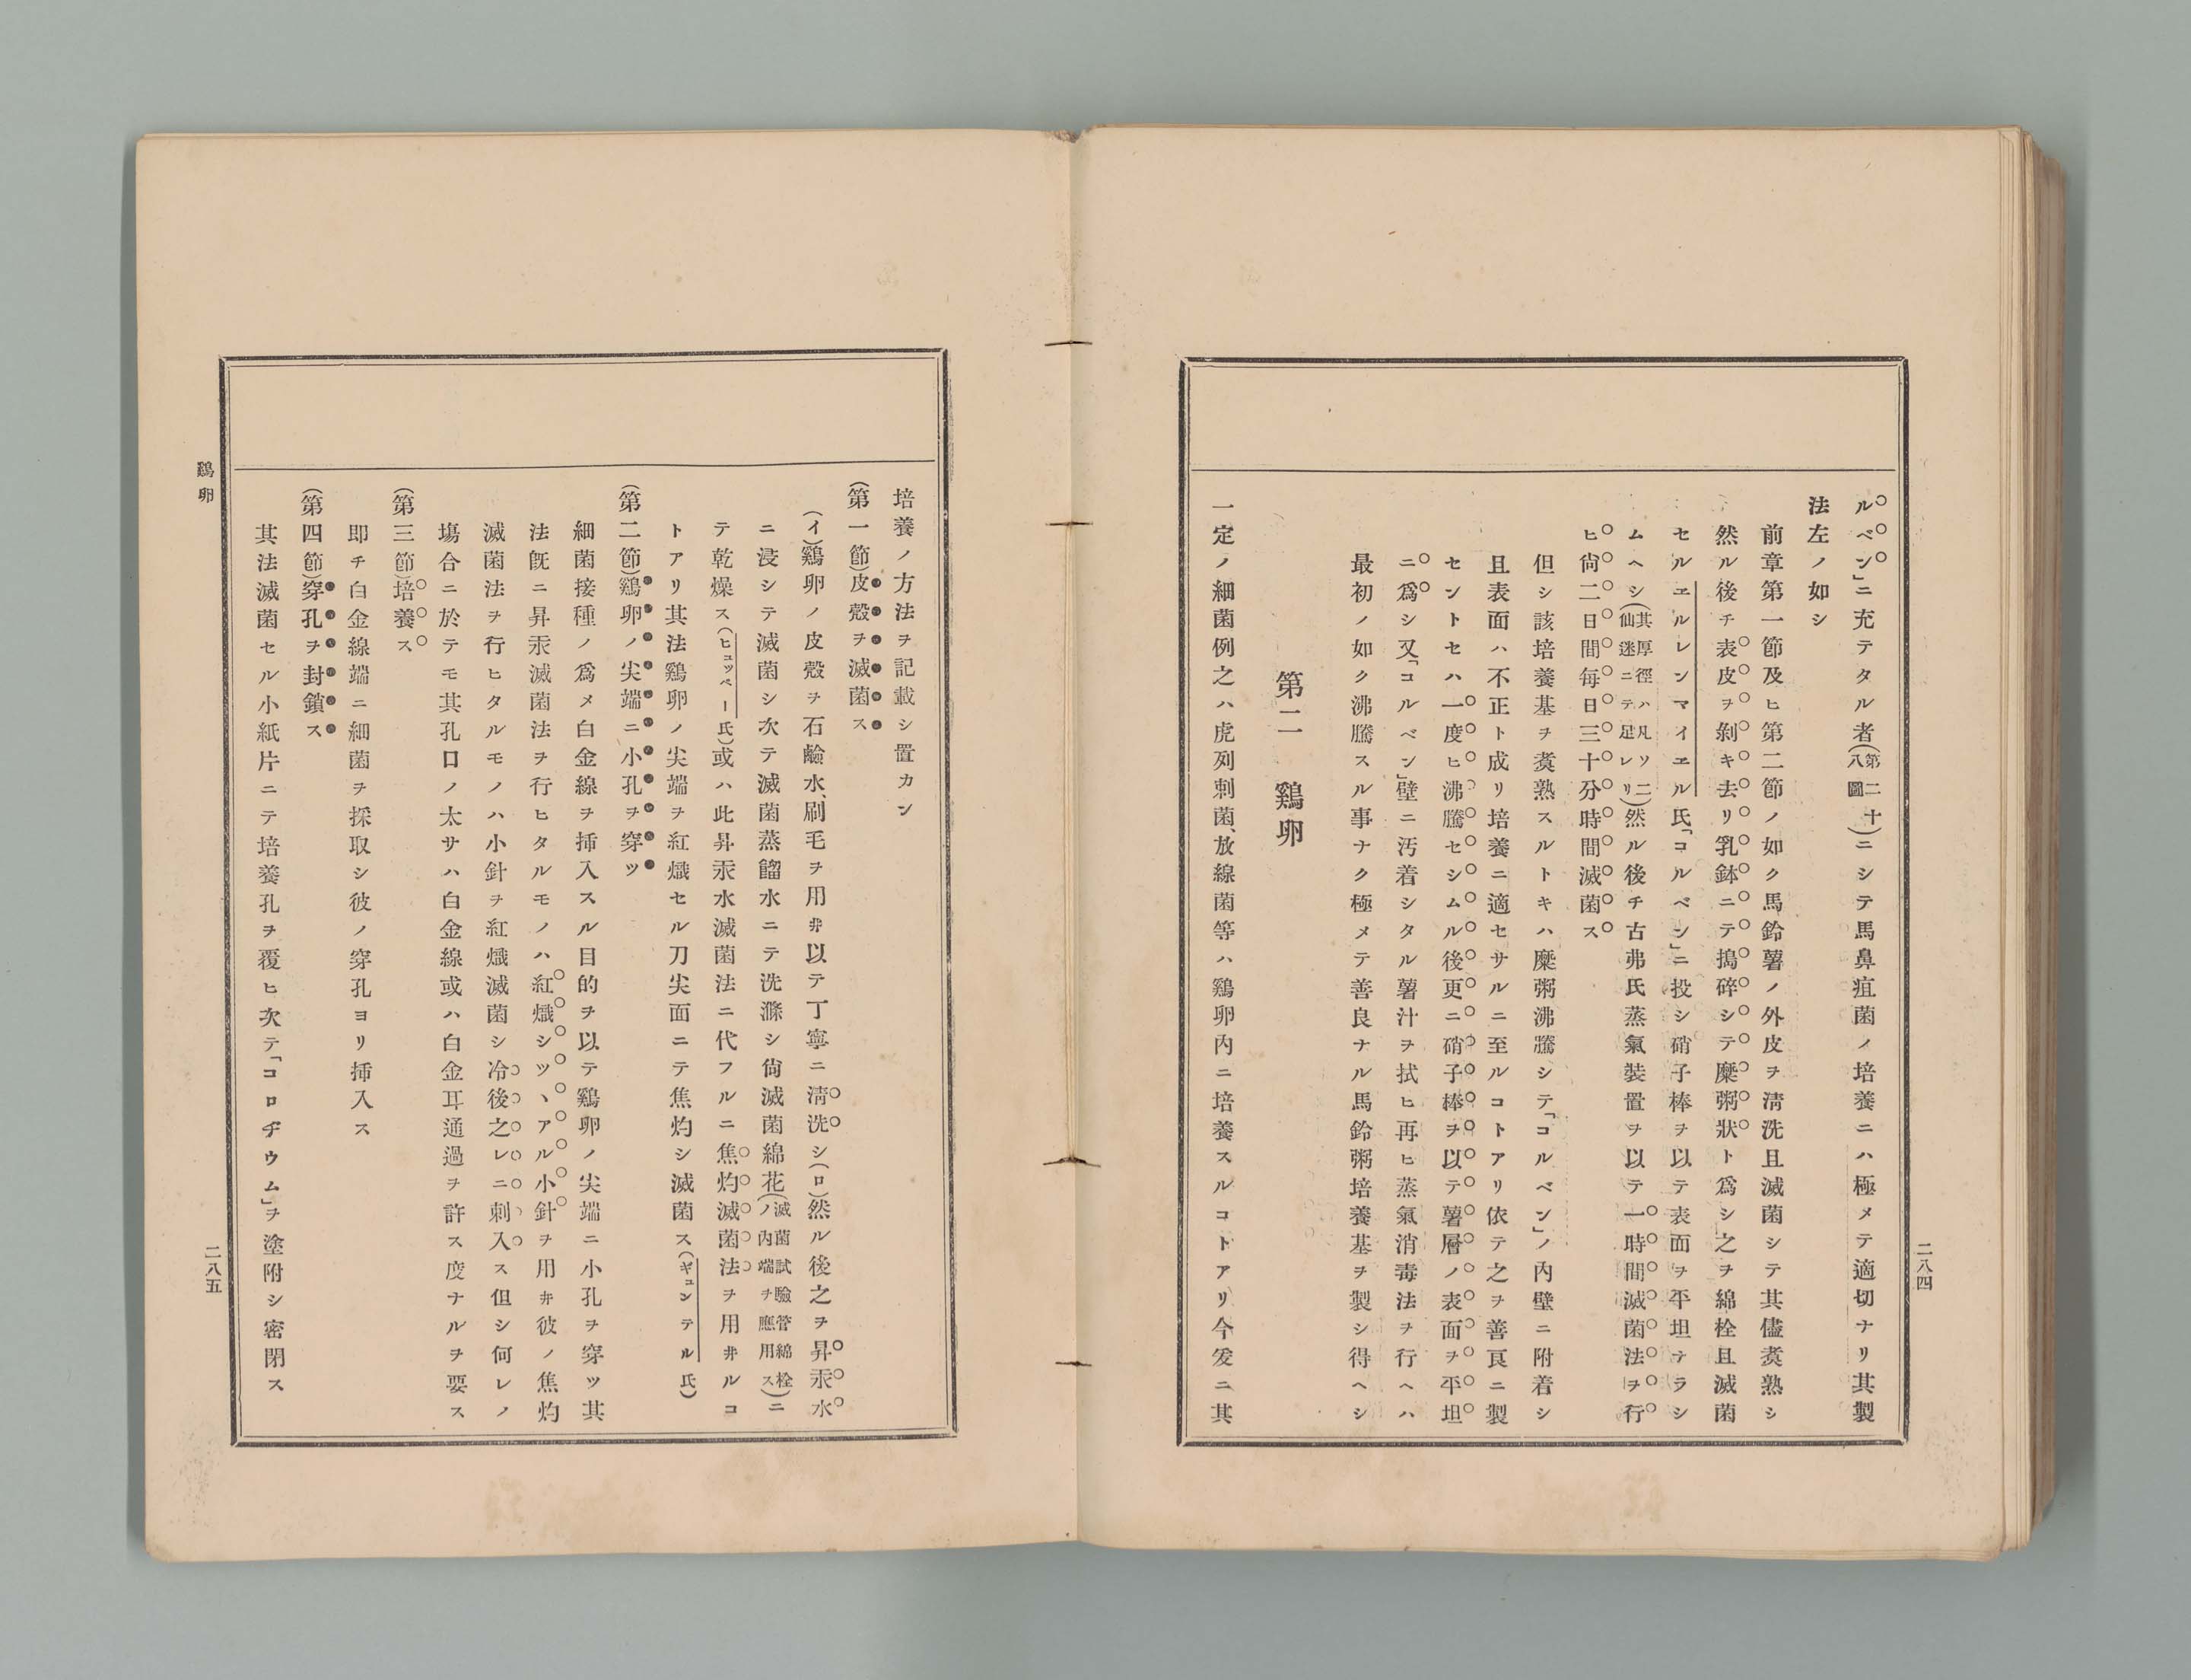 二八四
ルベン」ニ充テタル者(第二十八圖)ニシテ馬鼻疽菌ノ培養ニハ極メテ適切ナリ其製
法左ノ如シ
前章第一節及ヒ第二節ノ如ク馬鈴薯ノ外皮ヲ淸洗且滅菌シテ其儘煑熟シ
然ル後チ表皮ヲ剝キ去リ乳鉢ニテ搗碎シテ糜粥狀ト爲シ之ヲ綿栓且滅菌
セルヱルレンマイヱル氏「コルベン」ニ投シ硝子棒ヲ以テ表面ヲ平坦ナラシ
ムヘシ(其厚徑ハ凡ソ二仙迷ニテ足レリ)然ル後チ古弗氏蒸氣裝置ヲ以テ一時間滅菌法ヲ行
ヒ尙二日間每日三十分時間滅菌ス
但シ該培養基ヲ煑熟スルトキハ糜粥沸騰シテ「コルベン」ノ內壁ニ附着シ
且表面ハ不正ト成リ培養ニ適セサルニ至ルコトアリ依テ之ヲ善良ニ製
セントセハ一度ヒ沸騰セシムル後更ニ硝子棒ヲ以テ薯層ノ表面ヲ平坦
ニ爲シ又「コルベン」壁ニ汚着シタル薯汁ヲ拭ヒ再ヒ蒸氣消毒法ヲ行ヘハ
最初ノ如ク沸騰スル事ナク極メテ善良ナル馬鈴粥培養基ヲ製シ得ヘシ
第二 鷄卵
一定ノ細菌例之ハ虎列刺菌、放線菌等ハ鷄卵內ニ培養スルコトアリ今爰ニ其
培養ノ方法ヲ記載シ置カン
(第一節)皮殼ヲ滅菌ス
(イ)鷄卵ノ皮殼ヲ石鹼水、刷毛ヲ用井以テ丁寧ニ淸洗シ(ロ)然ル後之ヲ昇汞水
ニ浸シテ滅菌シ次テ滅菌蒸餾水ニテ洗滌シ尙滅菌綿花(滅菌試驗管綿栓ノ內端ヲ應用ス)ニ
テ乾燥ス(ヒュッペー氏)或ハ此昇汞水滅菌法ニ代フルニ焦灼滅菌法ヲ用井ルコ
トアリ其法鷄卵ノ尖端ヲ紅熾セル刀尖面ニテ焦灼シ滅菌ス(ギュンテル氏)
(第二節)鷄卵ノ尖端ニ小孔ヲ穿ツ
細菌接種ノ爲メ白金線ヲ挿入スル目的ヲ以テ鷄卵ノ尖端ニ小孔ヲ穿ツ其
法旣ニ昇汞滅菌法ヲ行ヒタルモノハ紅熾シツヽアル小針ヲ用井彼ノ焦灼
滅菌法ヲ行ヒタルモノハ小針ヲ紅熾滅菌シ冷後之レニ刺入ス但シ何レノ
塲合ニ於テモ其孔口ノ太サハ白金線或ハ白金耳通過ヲ許ス度ナルヲ要ス
(第三節)培養ス
卽チ白金線端ニ細菌ヲ採取シ彼ノ穿孔ヨリ挿入ス
(第四節)穿孔ヲ封鎖ス
其法滅菌セル小紙片ニテ培養孔ヲ覆ヒ次テ「コロヂウム」ヲ塗附シ密閉ス
鷄卵
二八五